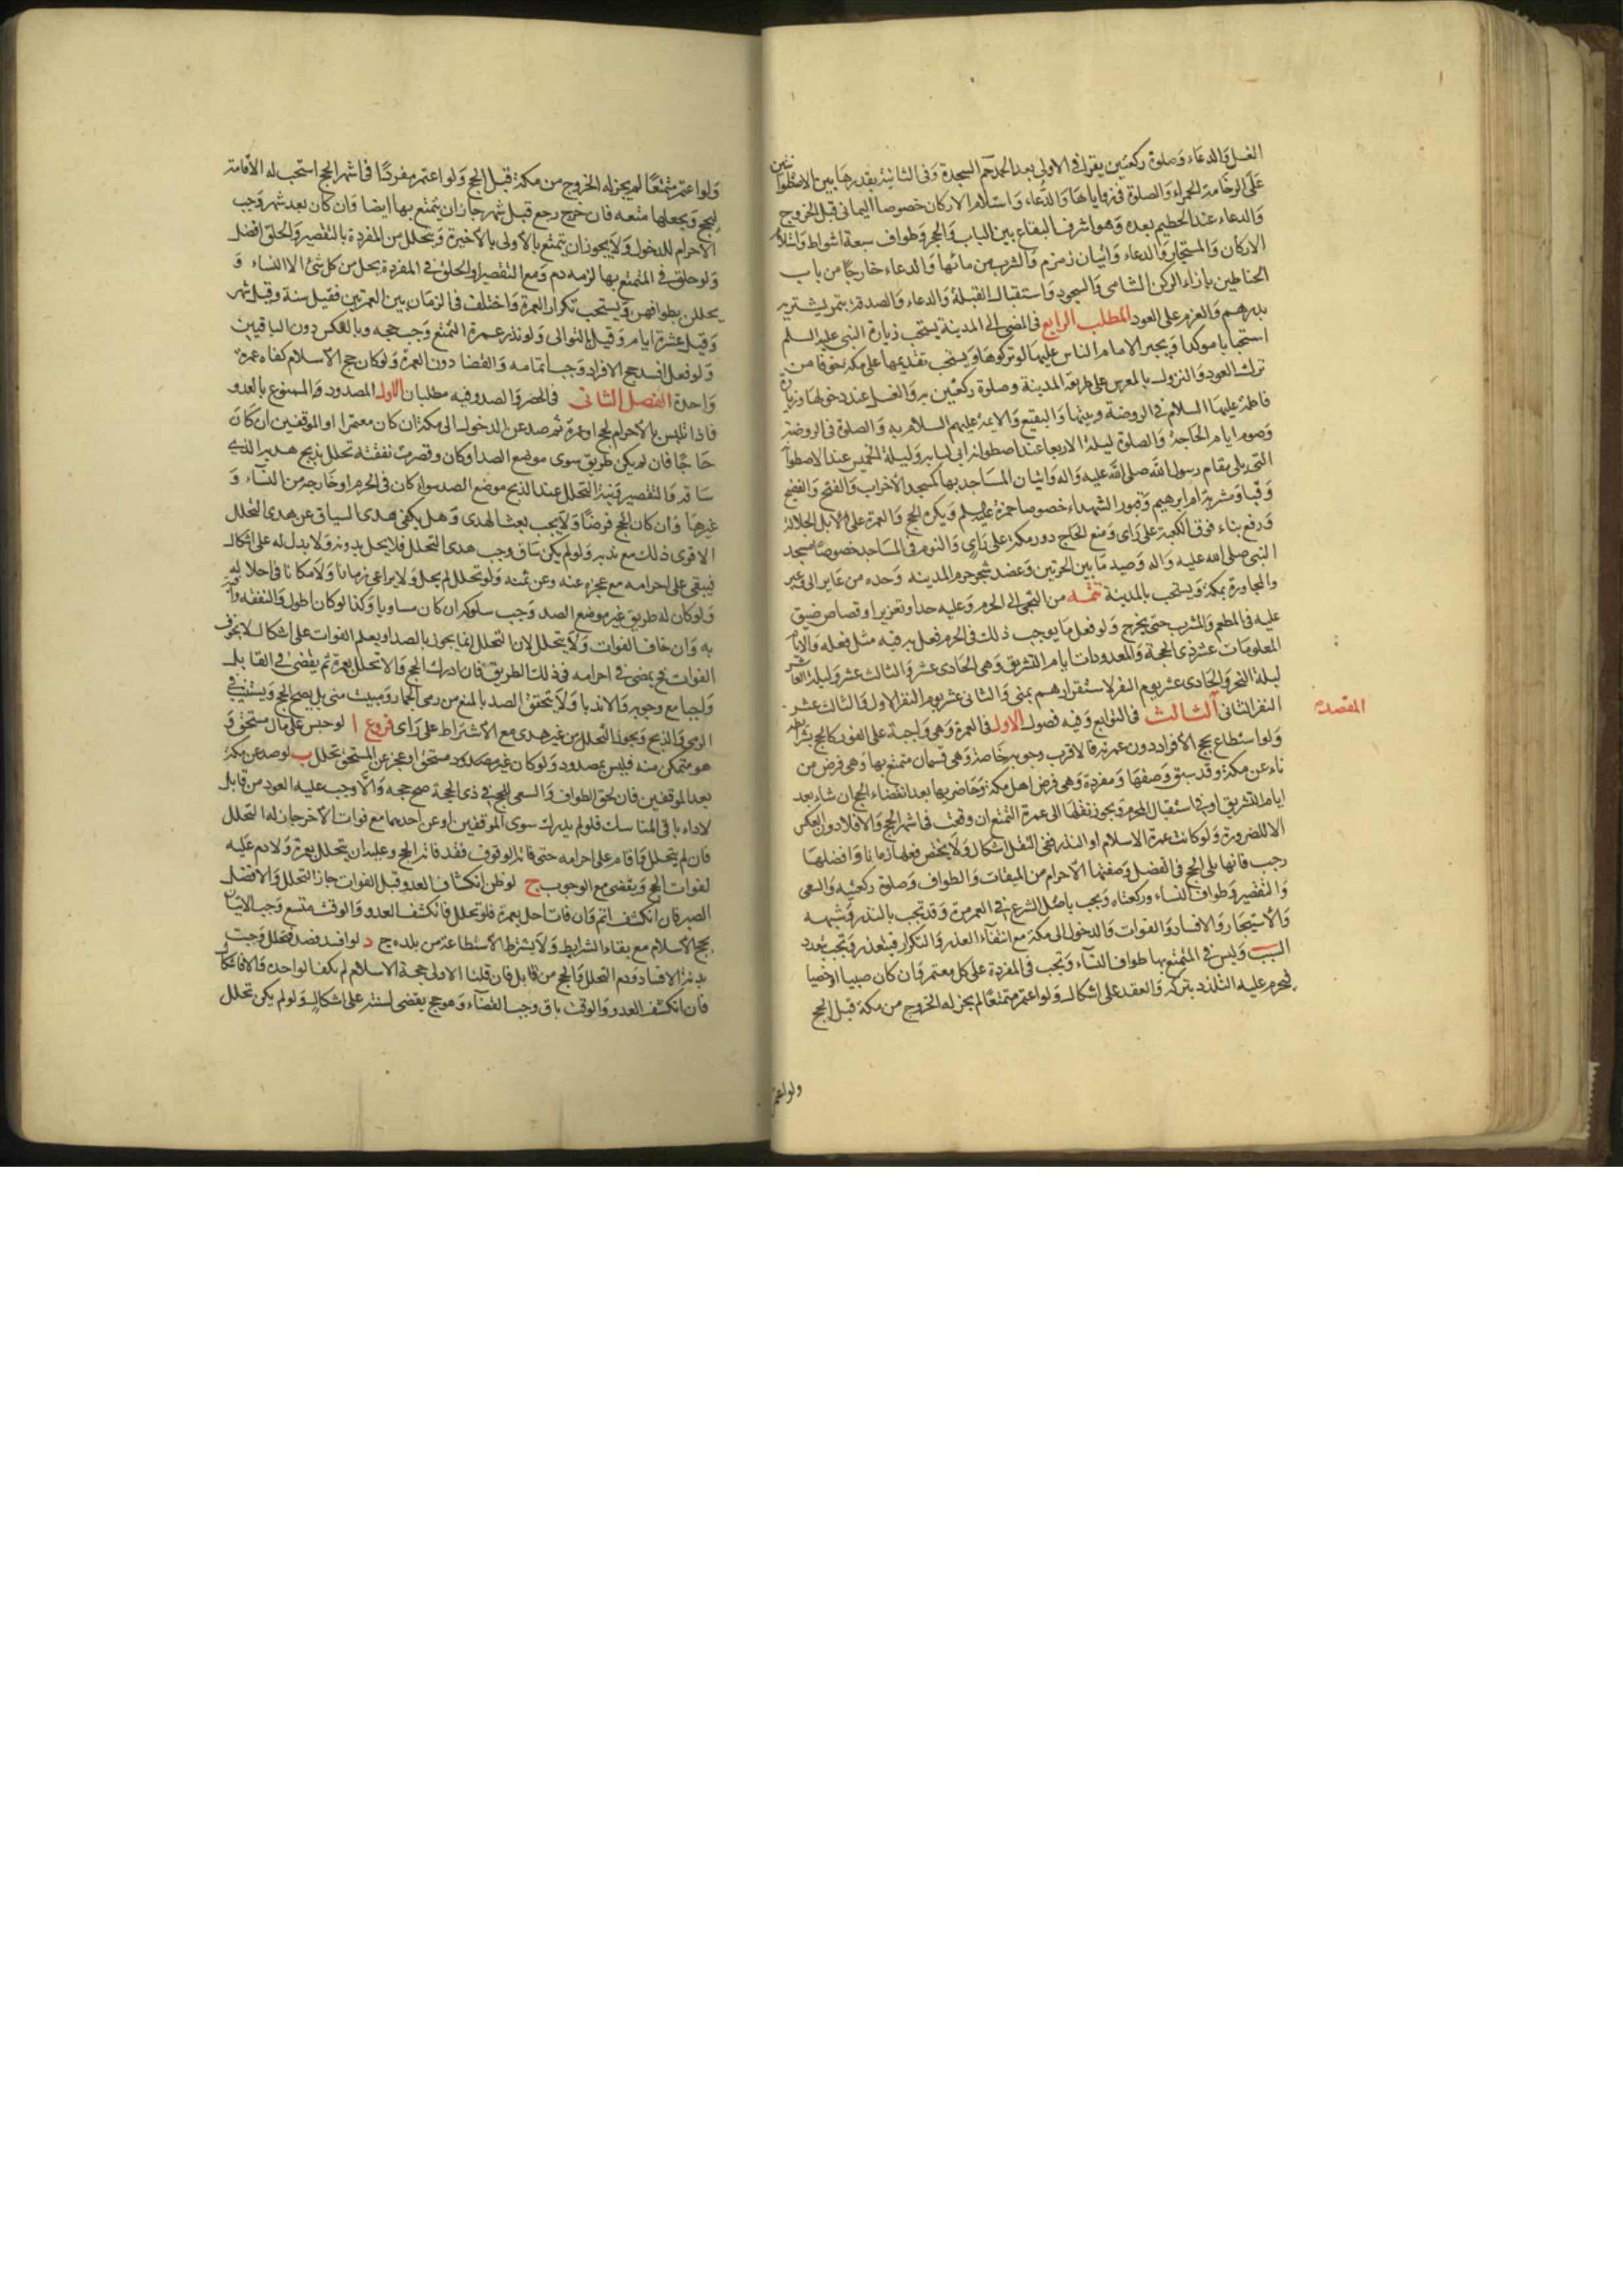 الغسل والدعاء وصلوة ركعتين يقرا في الاولى بعد الحمد حم السجدة وفى الثانية بقدرها بين الاسطوانتين
على الرخامة الحمراء والصلوة فى زواياها والدعاء واستلام الاركان خصوصا اليمانى قبل الخروج
والدعاء عند الحطيم بعده وهو اشرف البقاع بين الباب والحجر وطواف سبعة اشواط واستلام
الاركان والمستجار والدعاء واتيان زمزم والشرب من مائها والدعاء خارجا من باب
الحناطين بازاء الركن الشامى والسجود واستقبال القبلة والدعاء والصدقة بتمر يشتريه
بدرهم والعزم على العود المطلب الرابع فى المضى الى المدينة يستحب زيارة النبى عليه السلم
استحبابا موكدا ويجبر الامام الناس عليها لو تركوها ويستحب تقديمها على مكة خوفا من
ترك العود والنزول بالمعرس على طريقة المدينة وصلوة ركعتين به والغسل عند دخولها وزيارة
فاطمة عليها السلام فى الروضة وبيتها والبقيع والايمة عليهم السلام به والصلوة فى الروضة
وصوم ايام الحاجة والصلوة ليلة الاربعا عند اصطوانة ابى لبابه وليلة الخميس عند الاصطوانة
التى تلى مقام رسول الله صلى الله عليه واله واتيان المساجد بها كمسجد الاحزاب والفتح والفضيخ
وقبا ومشربة ام ابرهيم وقبور الشهداء خصوصا حمزة عليه السلم ويكره الحج والعمرة على الابل الجلالة
ورفع بناء فوق الكعبة على راى ومنع الحاج دور مكة على راى والنوم فى المساجد خصوصا مسجد
النبى صلى الله عليه واله وصيد ما بين الحرتين وعضد شجر حرم المدينه وحده من عاير الى وعير
والمجاورة بمكة ويستحب بالمدينة تتمه من التجى الى الحرم وعليه حد او تعزير او قصاص ضيق
عليه فى المطعم والمشرب حتى يخرج ولو فعل ما يوجب ذلك فى الحرم فعل به فيه مثل فعله والايام
المعلومات عشر ذى الحجة والمعدودات ايام التشريق وهى الحادى عشر والثانى عشر والثالث عشر وليلة العاشر
ليلة النحر والحادى عشر يوم القر لاستقرارهم بمنى والثانى عشر يوم النفر الاول والثالث عشر
النفر الثانى المقصد الثالث فى التوابع وفيه فصول الاول فى العمرة وهى واجبة على الفور كالحج بشرايطه
ولو استطاع لحج الافراد دون عمرته فالاقرب وجوبه خاصة وهى قسمان متمتع بها وهى فرض من
ناء عن مكة وقد سبق وصفها ومفردة وهى فرض اهل مكة وحاضريها بعد انقضاء الحج ان شاء بعد
ايام التشريق او فى استقبال المحرم ويجوز نقلها الى عمرة التمتع ان وقعت فى اشهر الحج والا فلا دون العكس
الا للضرورة ولو كانت عمرة الاسلام او النذر ففى النقل اشكال ولا يختص فعلها زمانا وافضلها
رجب فانها تلى الحج فى الفضل وصفتها الاحرام من الميقات والطواف وصلوة ركعتيه والسعى
والتقصير وطواف النساء وركعتاه ويجب باصل الشرع فى العمر مرة وقد تجب بالنذر وشبهه
والاستيجار والافساد والفوات والدخول الى مكة مع انتفاء العذر والتكرار فيتعدد وتجب بتعدد
السبب وليس فى المتمتع بها طواف النساء وتجب فى المفردة على كل معتمر وان كان صبيا او خصيا
فيحرم عليه التلذذ بتركه والعقد على اشكال ولو اعتمر متمتعا لم يجز له الخروج من مكة قبل الحج
ولو اعتمر
ولو اعتمر متمتعا لم يجز له الخروج من مكة قبل الحج ولو اعتمر مفردا فى اشهر الحج استحب له الاقامة
ليحج ويجعلها متعه فان خرج رجع قبل شهر جاز ان يتمتع بها ايضا وان كان بعد شهر وجب
الاحرام للدخول ولا يجوز ان يتمتع بالاولى بل بالاخيرة ويتحلل من المفردة بالتقصير والحلق افضل
ولو حلق فى المتمتع بها لزمه دم ومع التقصير او الحلق فى المفردة يحل من كل شئ الا النساء و
يحللن بطوافهن ويستحب تكرار العمرة واختلف فى الزمان بين العمرتين فقيل سنة وقيل شهر
وقيل عشرة ايام وقيل بالتوالى ولو نذر عمرة التمتع وجب حجه وبالعكس دون الباقيين
ولو فعل افسد حج الافراد وجب اتمامه والقضا دون العمرة ولو كان حج الاسلام كفاه عمرة
واحدة الفصل الثانى فى الحصر والصد وفيه مطلبان الاول المصدود والممنوع بالعدو
فاذا تلبس بالاحرام لحج او عمرة ثم صد عن الدخول الى مكة ان كان معتمرا او الموقفين ان كان
حاجا فان لم يكن طريق سوى موضع الصد او كان وقصرت نفقته تحلل بذبح هديه الذى
ساقه والتقصير ونية التحلل عند الذبح موضع الصد سواء كان فى الحرم او خارجه من النساء و
غيرها وان كان الحج فرضا ولا يجب بعث الهدى وهل يكفى هدى السياق عن هدى التحلل
الاقوى ذلك مع ندبه ولو لم يكن ساق وجب هدى التحلل فلا يحل بدونه ولا بدل له على اشكال
فيبقى على احرامه مع عجزه عنه وعن ثمنه ولو تحلل لم يحل ولا يراعى زمانا ولا مكانا فى احلاله
ولو كان له طريق غير موضع الصد وجب سلوكه ان كان مساويا وكذا لو كان اطول والنفقه وافية
به وان خاف الفوات ولا يتحلل لان التحلل انما يجوز بالصد او يعلم الفوات على اشكال لا بخوف
الفوات فح يمضى فى احرامه فى ذلك الطريق فان ادرك الحج والا تحلل بعمرة ثم يقضى فى القابل
واجبا مع وجوبه والا ندبا ولا يتحقق الصد بالمنع من رمى الجمار ومبيت منى بل يصح الحج ويستنيب فى
الرمى والذبح ويجوز التحلل من غير هدى مع الاشتراط على راى فروع ا لو حبس على مال مستحق و
هو متمكن منه فليس بمصدود ولو كان غير مستحق او عجز عن المستحق تحلل ب لو صد عن مكة
بعد الموقفين فان لحق الطواف والسعى للحج فى ذى الحجة صح حجه والا وجب عليه العود من قابل
لاداء باقى المناسك فلو لم يدرك سوى الموقفين او عن احدهما مع فوات الاخر جاز له التحلل
فان لم يتحلل واقام على احرامه حتى فاته الوقوف فقد فاته الحج وعليه ان يتحلل بعمرة ولا دم عليه
لفوات الحج ويقضى مع الوجوب ج لو ظن انكشاف العدو قبل الفوات جاز التحلل والافضل
الصبر فان انكشف اتم وان فات احل بعمرة فلو تحلل فانكشف العدو والوقت متسع وجب الاتيان
بحج الاسلام مع بقاء الشرايط ولا يشترط الاستطاعة من بلده ح د لو افسد فصد فتحلل وجبت
بدنة الافساد ودم التحلل والحج من قابل فان قلنا الاولى حجة الاسلام لم يكف الواحد والا فاشكال
فان انكشف العدو والوقت باق وجب القضاء وهو حج يقضى لسنته على اشكال ولو لم يكن تحلل